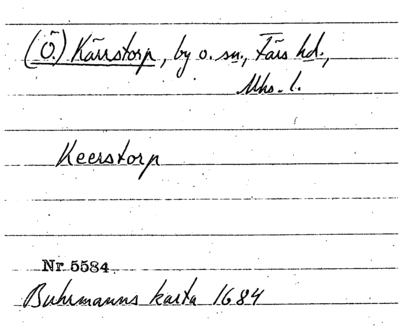 (Ö.) Kärrstorp, by o. sn., Färs hd.,
Mhs. l.
Keerstorp
Nr 5584
Buhrmanns karta 1684